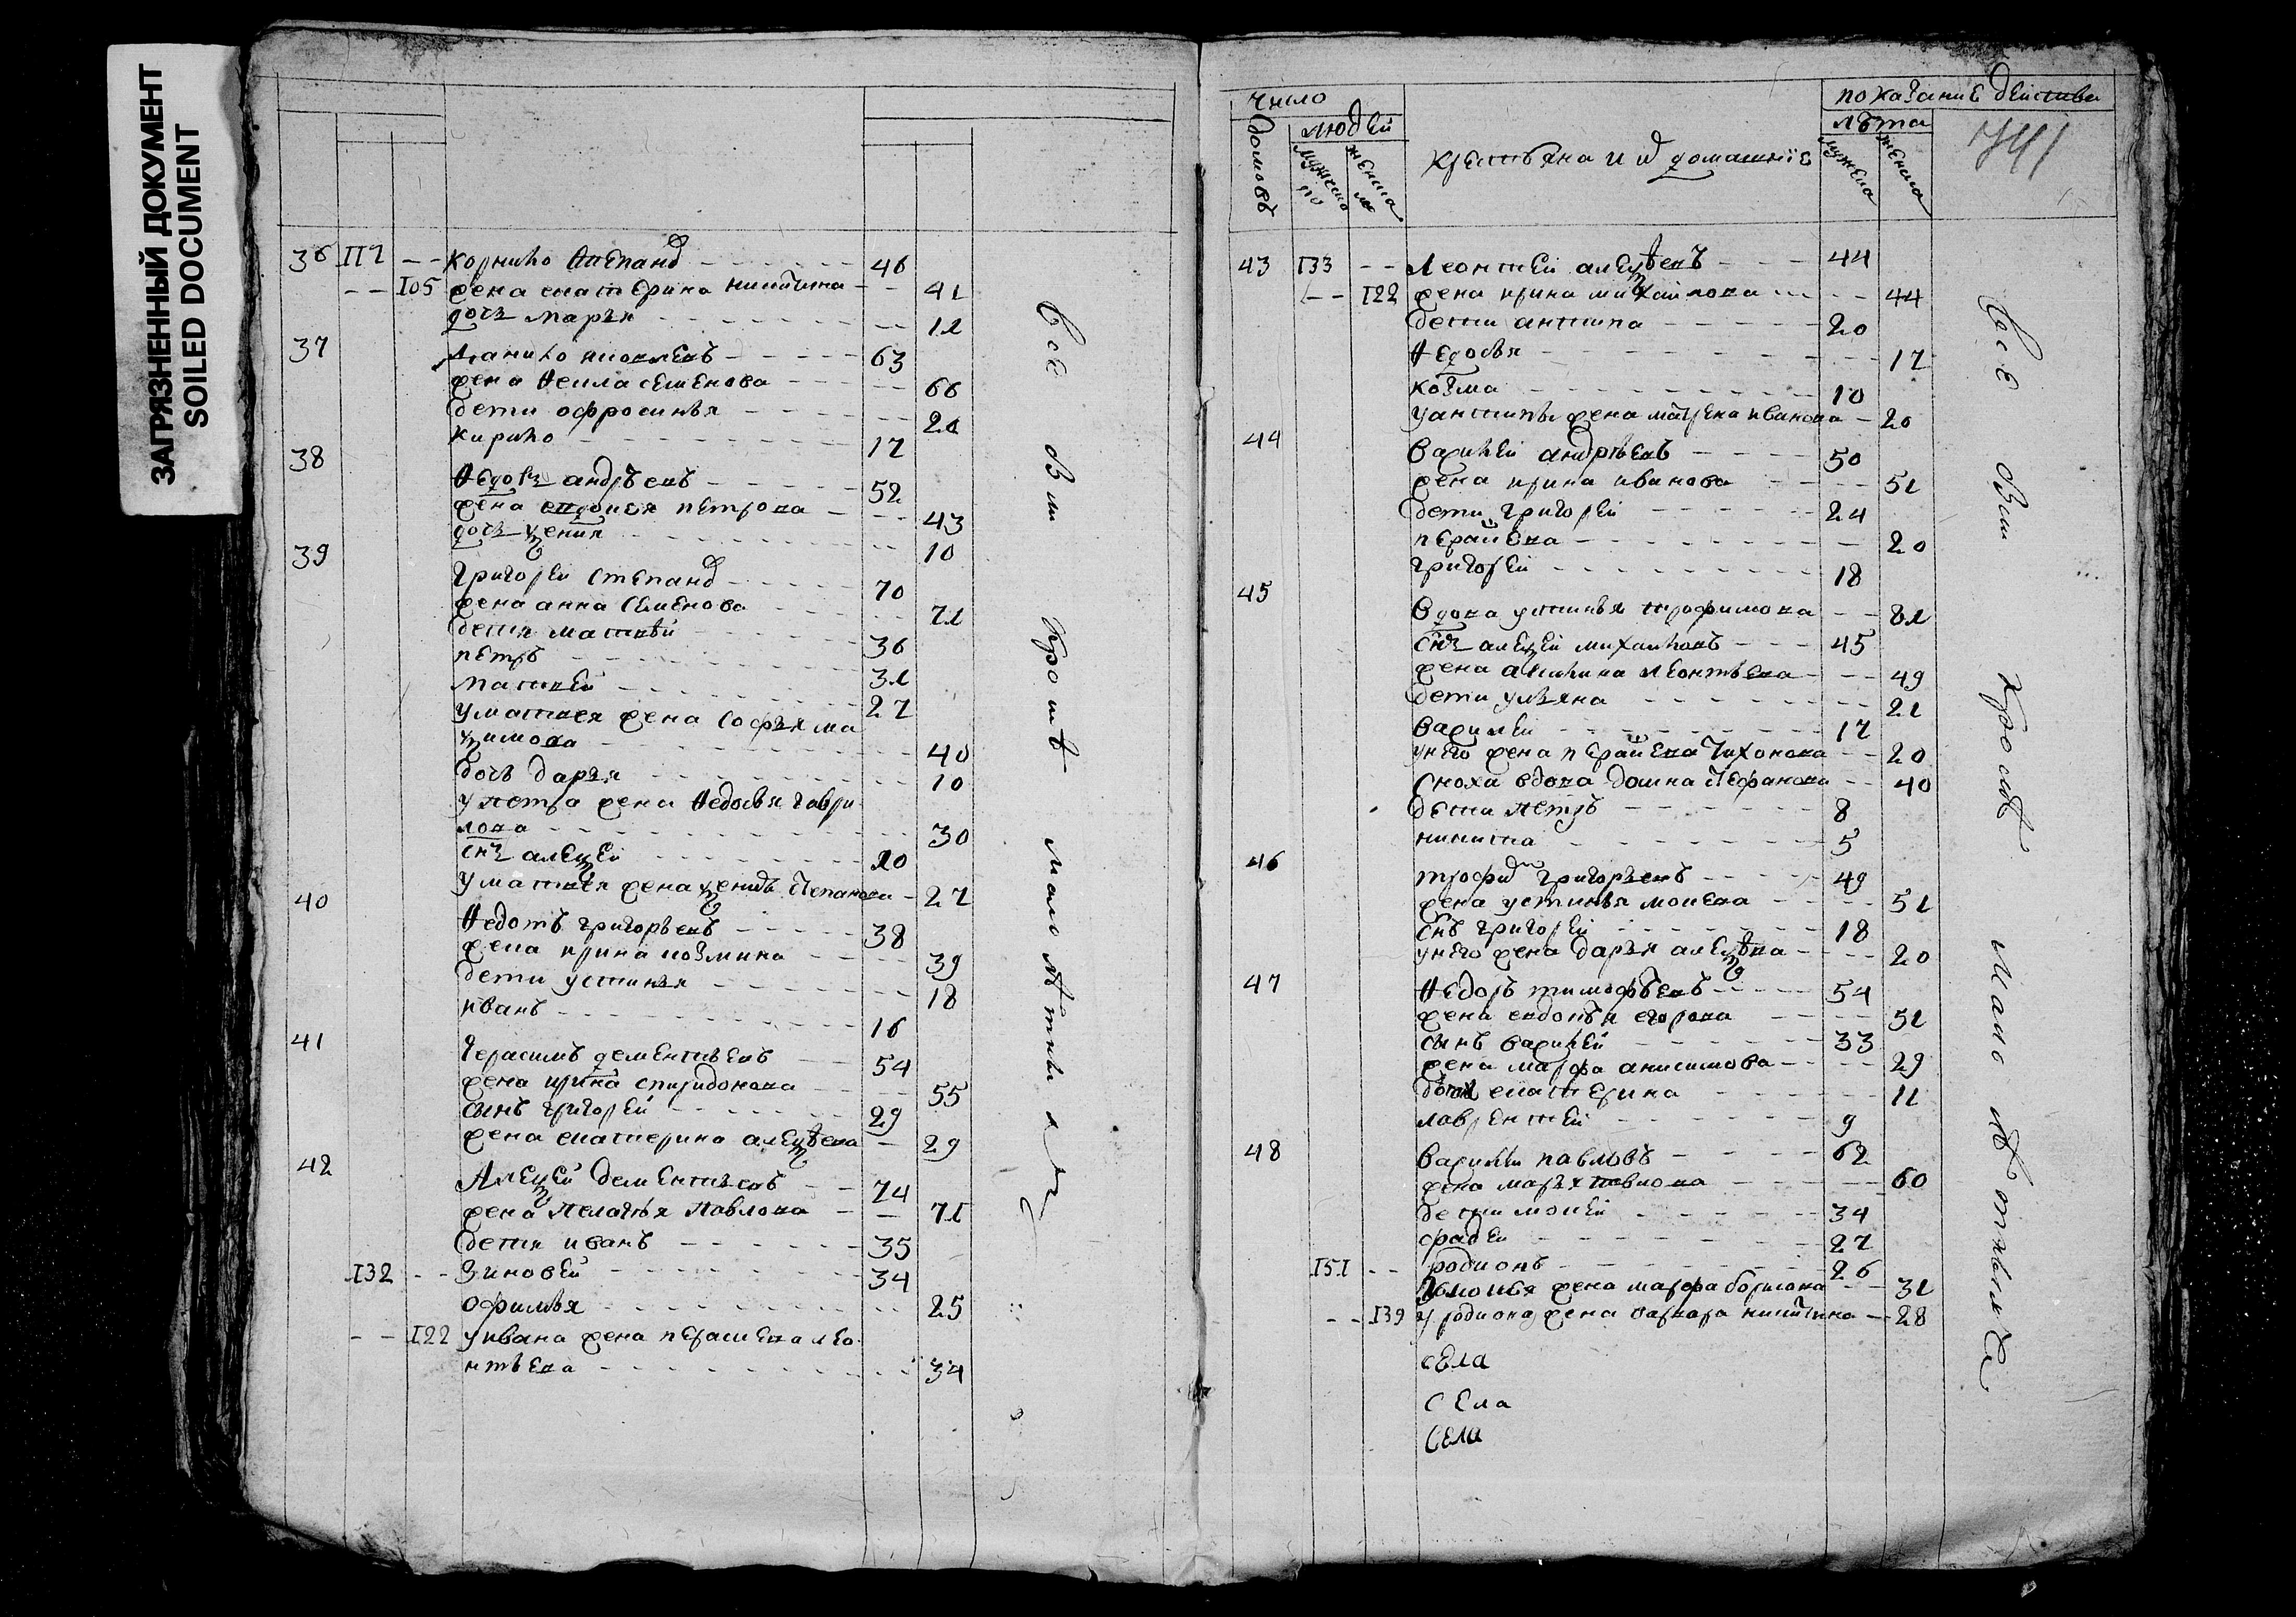 ЗАГРЯЗНЕННЫЙ ДОКУМЕНТ
SOILED DOCUMENT
36 117 -- Корнило Степанов 46
-- 105 жена екатерина никитина 41
дочь марья 11
37 Данило яковлевъ 63
жена Фекла семенова 66
дети офросинья 20
кирило 17
38 Федоръ андреевъ 52
жена евдокея петрова 43
дочь ксения 10
39 Григорей степанов 70
жена анна семенова 71
дети матвѣй 36
петръ 31
матвей 27
у матвея жена софья ма
ксимова 40
дочь дарья 10
у петра жена Федосья гаври
лова 30
снъ алексей 10
у матвея жена ксенья степанова 27
40 Федотъ григорьевъ 38
жена ирина козмина 39
дети устинья 18
иванъ 16
41 Герасимъ дементьевъ 54
жена ирина спиридонова 55
сынъ григорей 29
жена екатерина алексѣева 29
42 Алексей дементьевъ 74
жена Пелагѣя Павлова 71
дети иванъ 35
132 -- Зиновей 34
офимья 25
-- 122 у ивана жена перасковья лео
нтьева 34
всѣ въ кромѣ малолѣтныхъ
число
домовъ
людей
мужеска
женска
крестьяна и их домашніе
показание действа
лѣта
мужеска
женска
741
43 133 -- Леонтей алексѣевъ 44
-- 122 жена ирина михаилова 44
дети антипа 20
Федосья 17
козма 10
у антипы жена матрена иванова 20
44 Василей андрѣевъ 50
жена ирина иванова 51
дети григорей 24
20
григорей 18
45 Вдова устинья трофимова 81
снъ алексей михаиловъ 45
жена акилина леонтьева 49
дети ульяна 21
василей 17
у него жена тихонова 20
сноха вдова домна стефанова 40
дети петръ 8
никита 5
46 трофим григорьевъ 49
жена устинья мокеева 51
снъ григорей 18
у него жена дарья алексѣева 20
47 Федоръ тимофѣевъ 54
жена евдокѣя егорова 51
сынъ василей 33
жена марфа анисимова 29
дети екатерина 11
лаврентей 9
48 Василей павловъ 62
жена марья павлова 60
дети мокей 34
фадей 27
151 -- родионъ 26
у мокея жена марфа борисова 31
-- 139 у родиона жена варвара никитина 28
села
села
села
всѣ въ кромѣ малолѣтныхъ